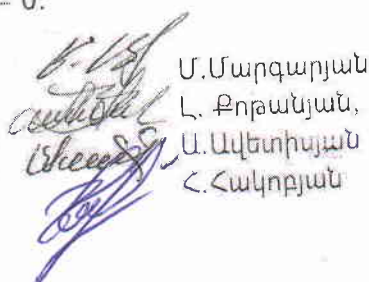 – 0.
Մ.Մարգարյան
Լ. Քոթանյան,
Ա.Ավետիսյան
Հ.Հակոբյան